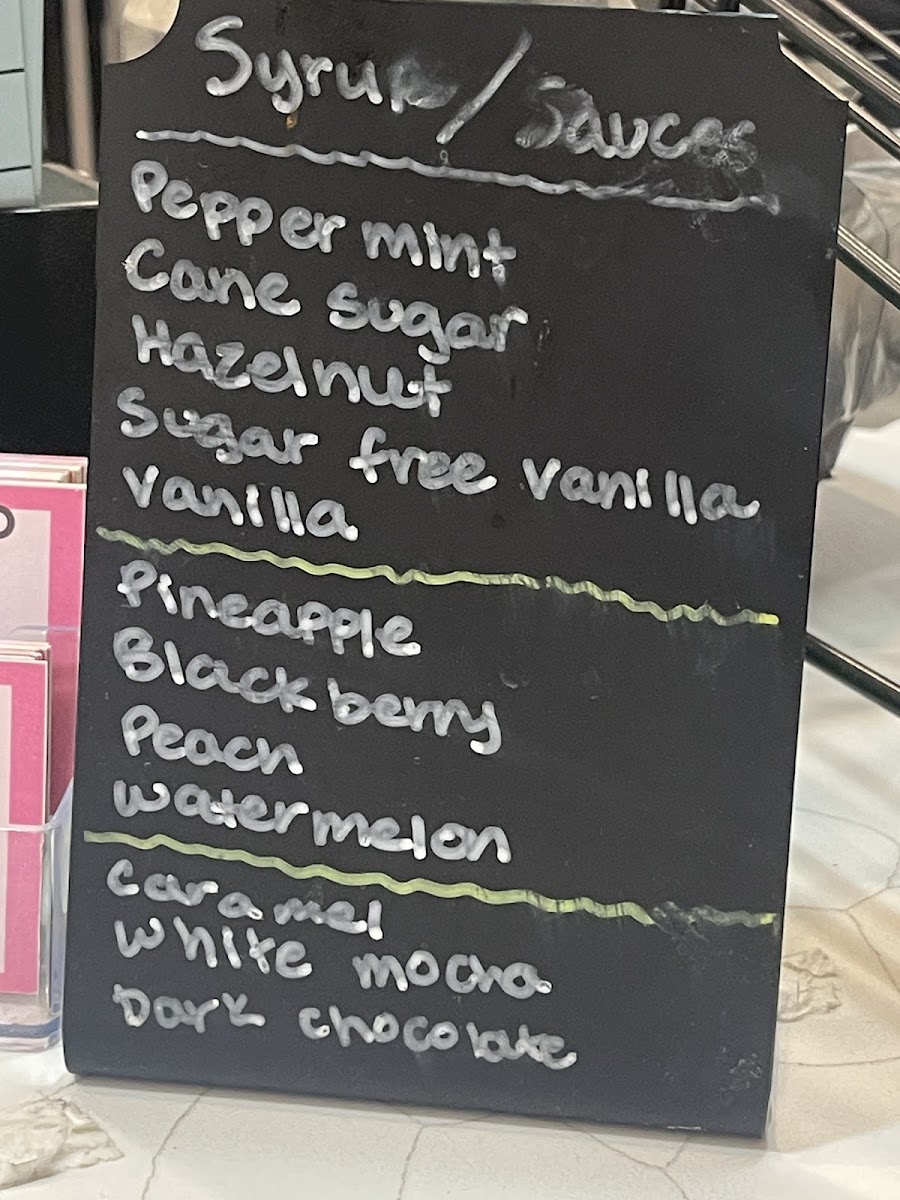 Syrup/Sauces
Peppermint
Cane sugar
Hazelnut
Sugar free vanilla
Vanilla
Pineapple
Blackberry
Peach
Watermelon
Caramel
White mocha
Dark chocolate